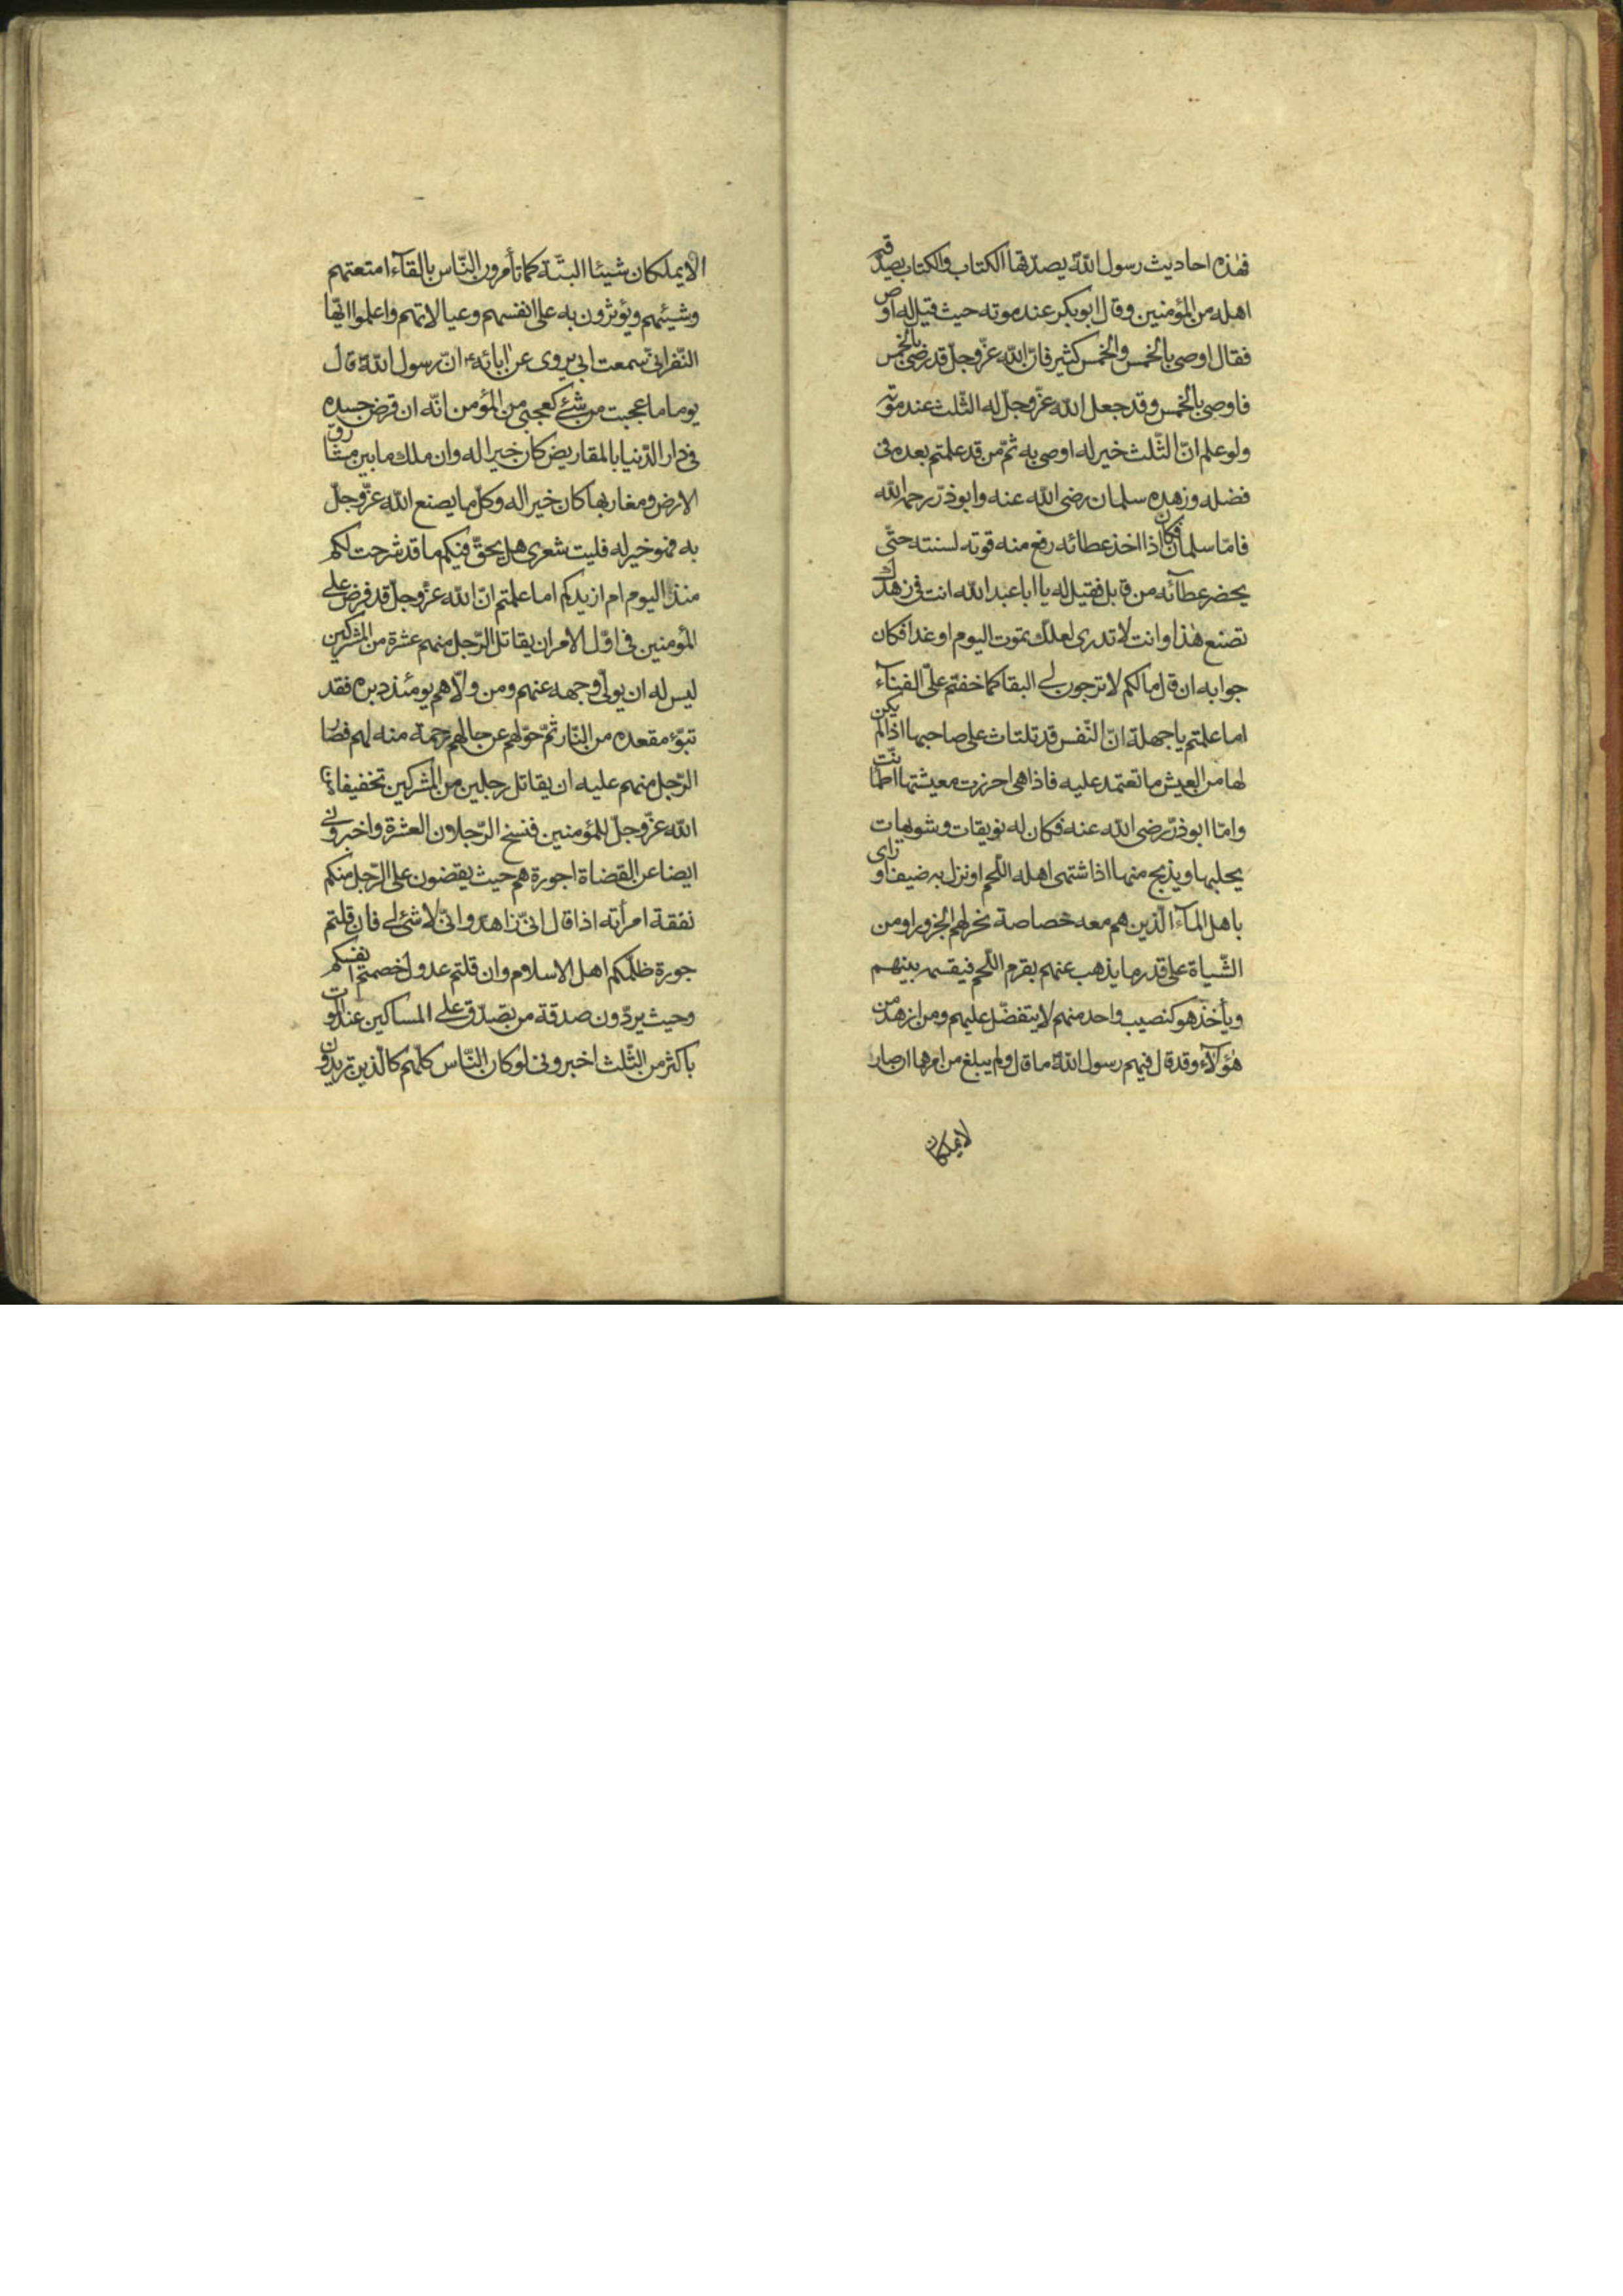 فهٰذه احاديث رسول اللّه يصدّقها الكتاب والكتاب يصدّقه
اهله من المؤمنين وقال ابوبكر عند موته حيث قيل له اوص
فقال اوصى بالخمس والخمس كثير فانّ اللّه عزّوجلّ قد رضى بالخمس
فاوصى بالخمس وقد جعل اللّه عزّوجلّ له الثّلث عند موته
ولو علم انّ الثّلث خير له اوصى به ثمّ من قد علمتم بعده فى
فضله وزهده سلمان رضى اللّه عنه وابوذرّ رحمه اللّه
فامّا سلمان فكان اذا اخذ عطائه رفع منه قوته لسنته حتّى
يحضر عطآئه من قابل فقيل له يا ابا عبد اللّه انت فى زهدك
تصنع هٰذا وانت لا تدرى لعلّك تموت اليوم او غدا فكان
جوابه ان قال مالكم لا ترجون لى البقا كما خفتم علىّ الفنآء
اما علمتم يا جهلة انّ النّفس قد تلتاث على صاحبها اذا لم يكن
لها من العيش ما تعتمد عليه فاذا هى احرزت معيشتها اطمأنّت
وامّا ابوذرّ رضى اللّه عنه فكان له نويقات وشويهات
يحلبها ويذبح منها اذا اشتهى اهله اللّحم او نزل به ضيف او راى
باهل المآء الّذين هم معه خصاصة نحر لهم الجزور او من
الشّياة على قدر ما يذهب عنهم بقرم اللّحم فيقسمه بينهم
ويأخذ هو كنصيب واحد منهم لا يتفضّل عليهم ومن ازهد من
هٰؤلآء وقد قال فيهم رسول اللّه ما قال ولم يبلغ من امرها ان صار
لا يملكان
لا يملكان شيئا البتّة كما تأمرون النّاس بالقآء امتعتهم
وشيئهم ويؤثرون به على انفسهم وعيالاتهم واعلموا ايّها
النّفر انّى سمعت ابى يروى عن اٰبائه انّ رسول اللّه قال
يوما ما عجبت من شئ كعجبى من المؤمن انّه ان قرض جسده
فى دار الدّنيا بالمقاريض كان خيرا له وان ملك ما بين مشارق
الارض ومغاربها كان خيرا له وكلّ ما يصنع اللّه عزّوجلّ
به فهو خير له فليت شعرى هل يحقّ فيكم ما قد شرحت لكم
منذ اليوم ام ازيدكم اما علمتم انّ اللّه عزّوجلّ قد فرض على
المؤمنين فى اوّل الامر ان يقاتل الرّجل منهم عشرة من المشركين
ليس له ان يولّى وجهه عنهم ومن ولّاهم يومئذ دبره فقد
تبوّء مقعده من النّار ثمّ حوّلهم عن حالهم رحمة منه لهم فصار
الرّجل منهم عليه ان يقاتل رجلين من المشركين تخفيفا من
اللّه عزّوجلّ للمؤمنين فنسخ الرّجلان العشرة واخبرونى
ايضا عن القضاة اجورة هم حيث يقضون على الرّجل منكم
نفقة امرأته اذا قال انّى زاهد وانّى لا شئ لى فان قلتم
جورة ظلّمكم اهل الاسلام وان قلتم عدول خصمتم انفسكم
وحيث يردّون صدقة من تصدّق على المساكين عند الموت
باكثر من الثّلث اخبرونى لو كان النّاس كلّهم كالّذين تريدون